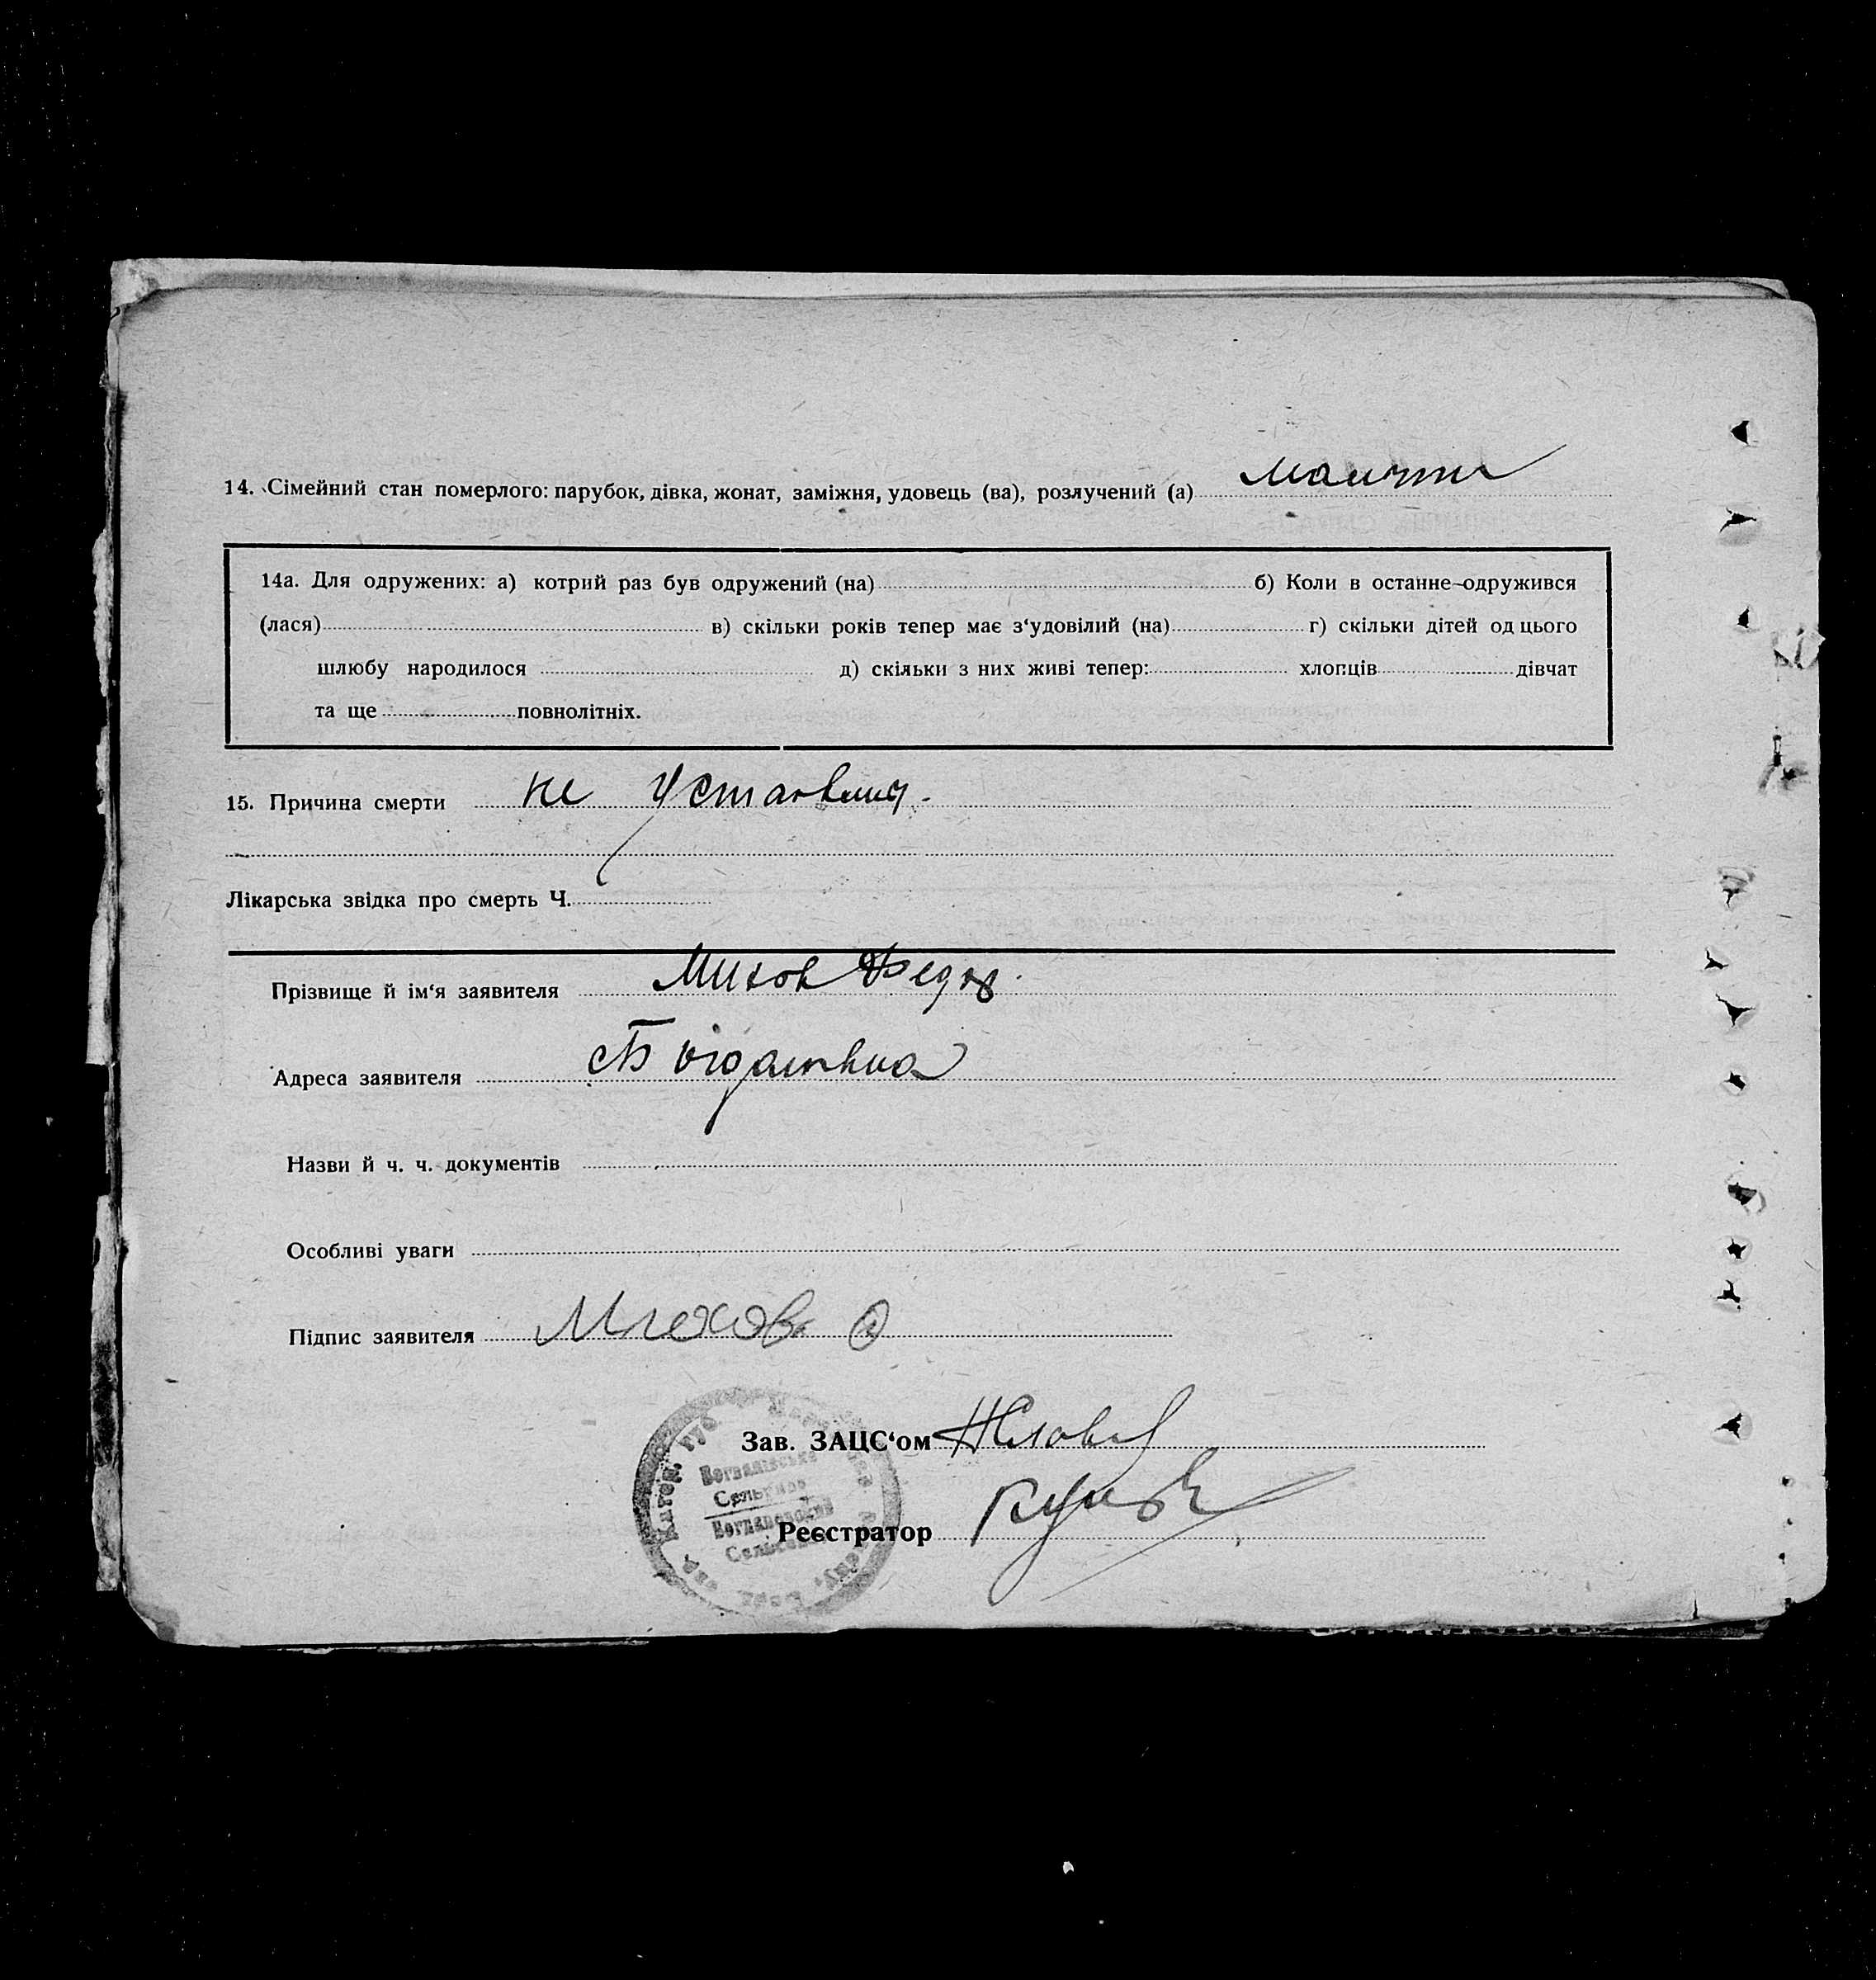 14. Сімейний стан померлого: парубок, дівка, жонат, заміжня, удовець (ва), розлучений (а)
14а. Для одружених: а) котрий раз був одружений (на) б) Коли в останне-одружився
(лася) в) скільки років тепер має з‘удовілий (на) г) скільки дітей од цього
шлюбу народилося д) скільки з них живі тепер: хлопців дівчат
та ще повнолітніх.
15. Причина смерти не
Лікарська звідка про смерть Ч.
Прізвище й ім‘я заявителя Михов Федор
Адреса заявителя
Назви й ч. ч. документів
Особливі уваги
Підпис заявителя
Зав. ЗАЦС‘ом
Реєстратор